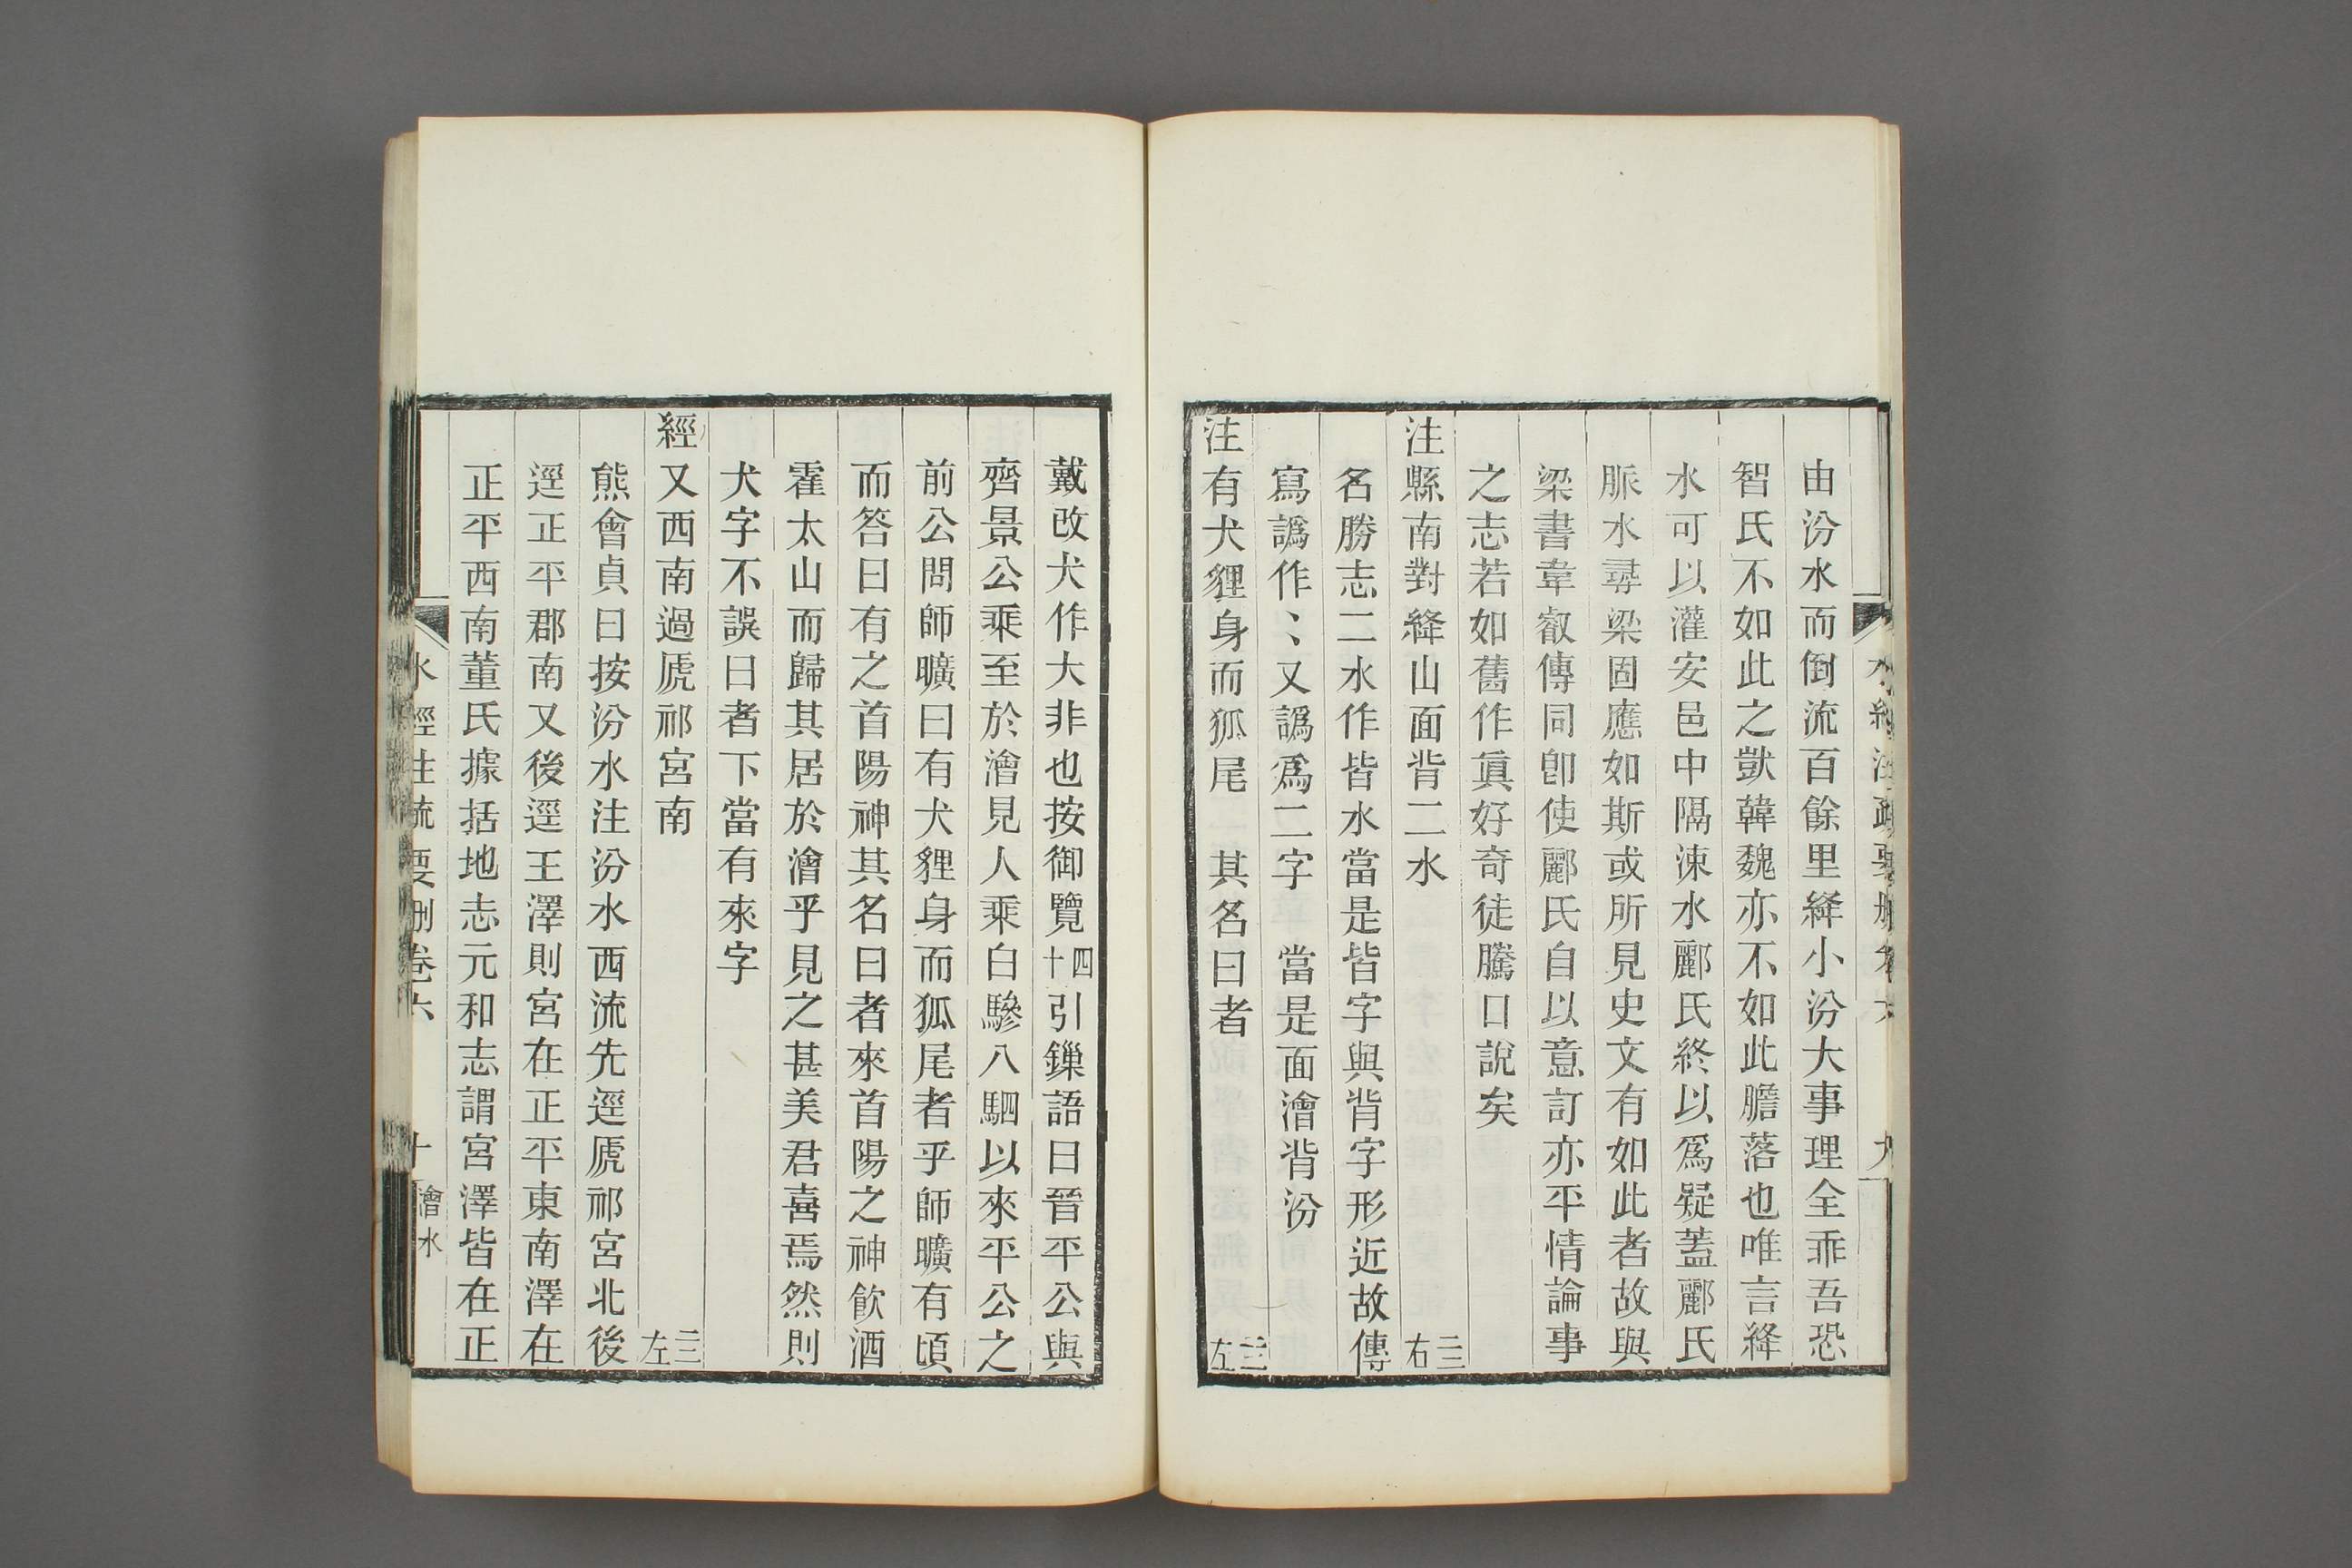 水經注疏要刪卷六 九
由汾水而倒流百餘里絳小汾大事理全乖吾恐
智氏不如此之獃韓魏亦不如此膽落也唯言絳
水可以灌安邑中隔涑水酈氏終以爲疑蓋酈氏
脈水尋梁固應如斯或所見史文有如此者故與
梁書韋叡傳同卽使酈氏自以意訂亦平情論事
之志若如舊作眞好奇徒騰口說矣
注縣南對絳山面背二水 三右
名勝志二水作皆水當是皆字與背字形近故傳
寫譌作〻又譌爲二字 當是面澮背汾
注有犬貍身而狐尾 其名曰者 三左
戴改犬作大非也按御覽四十引鏁語曰晉平公與
齊景公乘至於澮見人乘白驂八駟以來平公之
前公問師曠曰有犬貍身而狐尾者乎師曠有頃
而答曰有之首陽神其名曰者來首陽之神飮酒
霍太山而歸其居於澮乎見之甚美君喜焉然則
犬字不誤曰者下當有來字
經又西南過虒祁宮南 三左
熊會貞曰按汾水注汾水西流先逕虒祁宮北後
逕正平郡南又後逕王澤則宮在正平東南澤在
正平西南董氏據括地志元和志謂宮澤皆在正
水經注疏要刪卷六 十 澮水